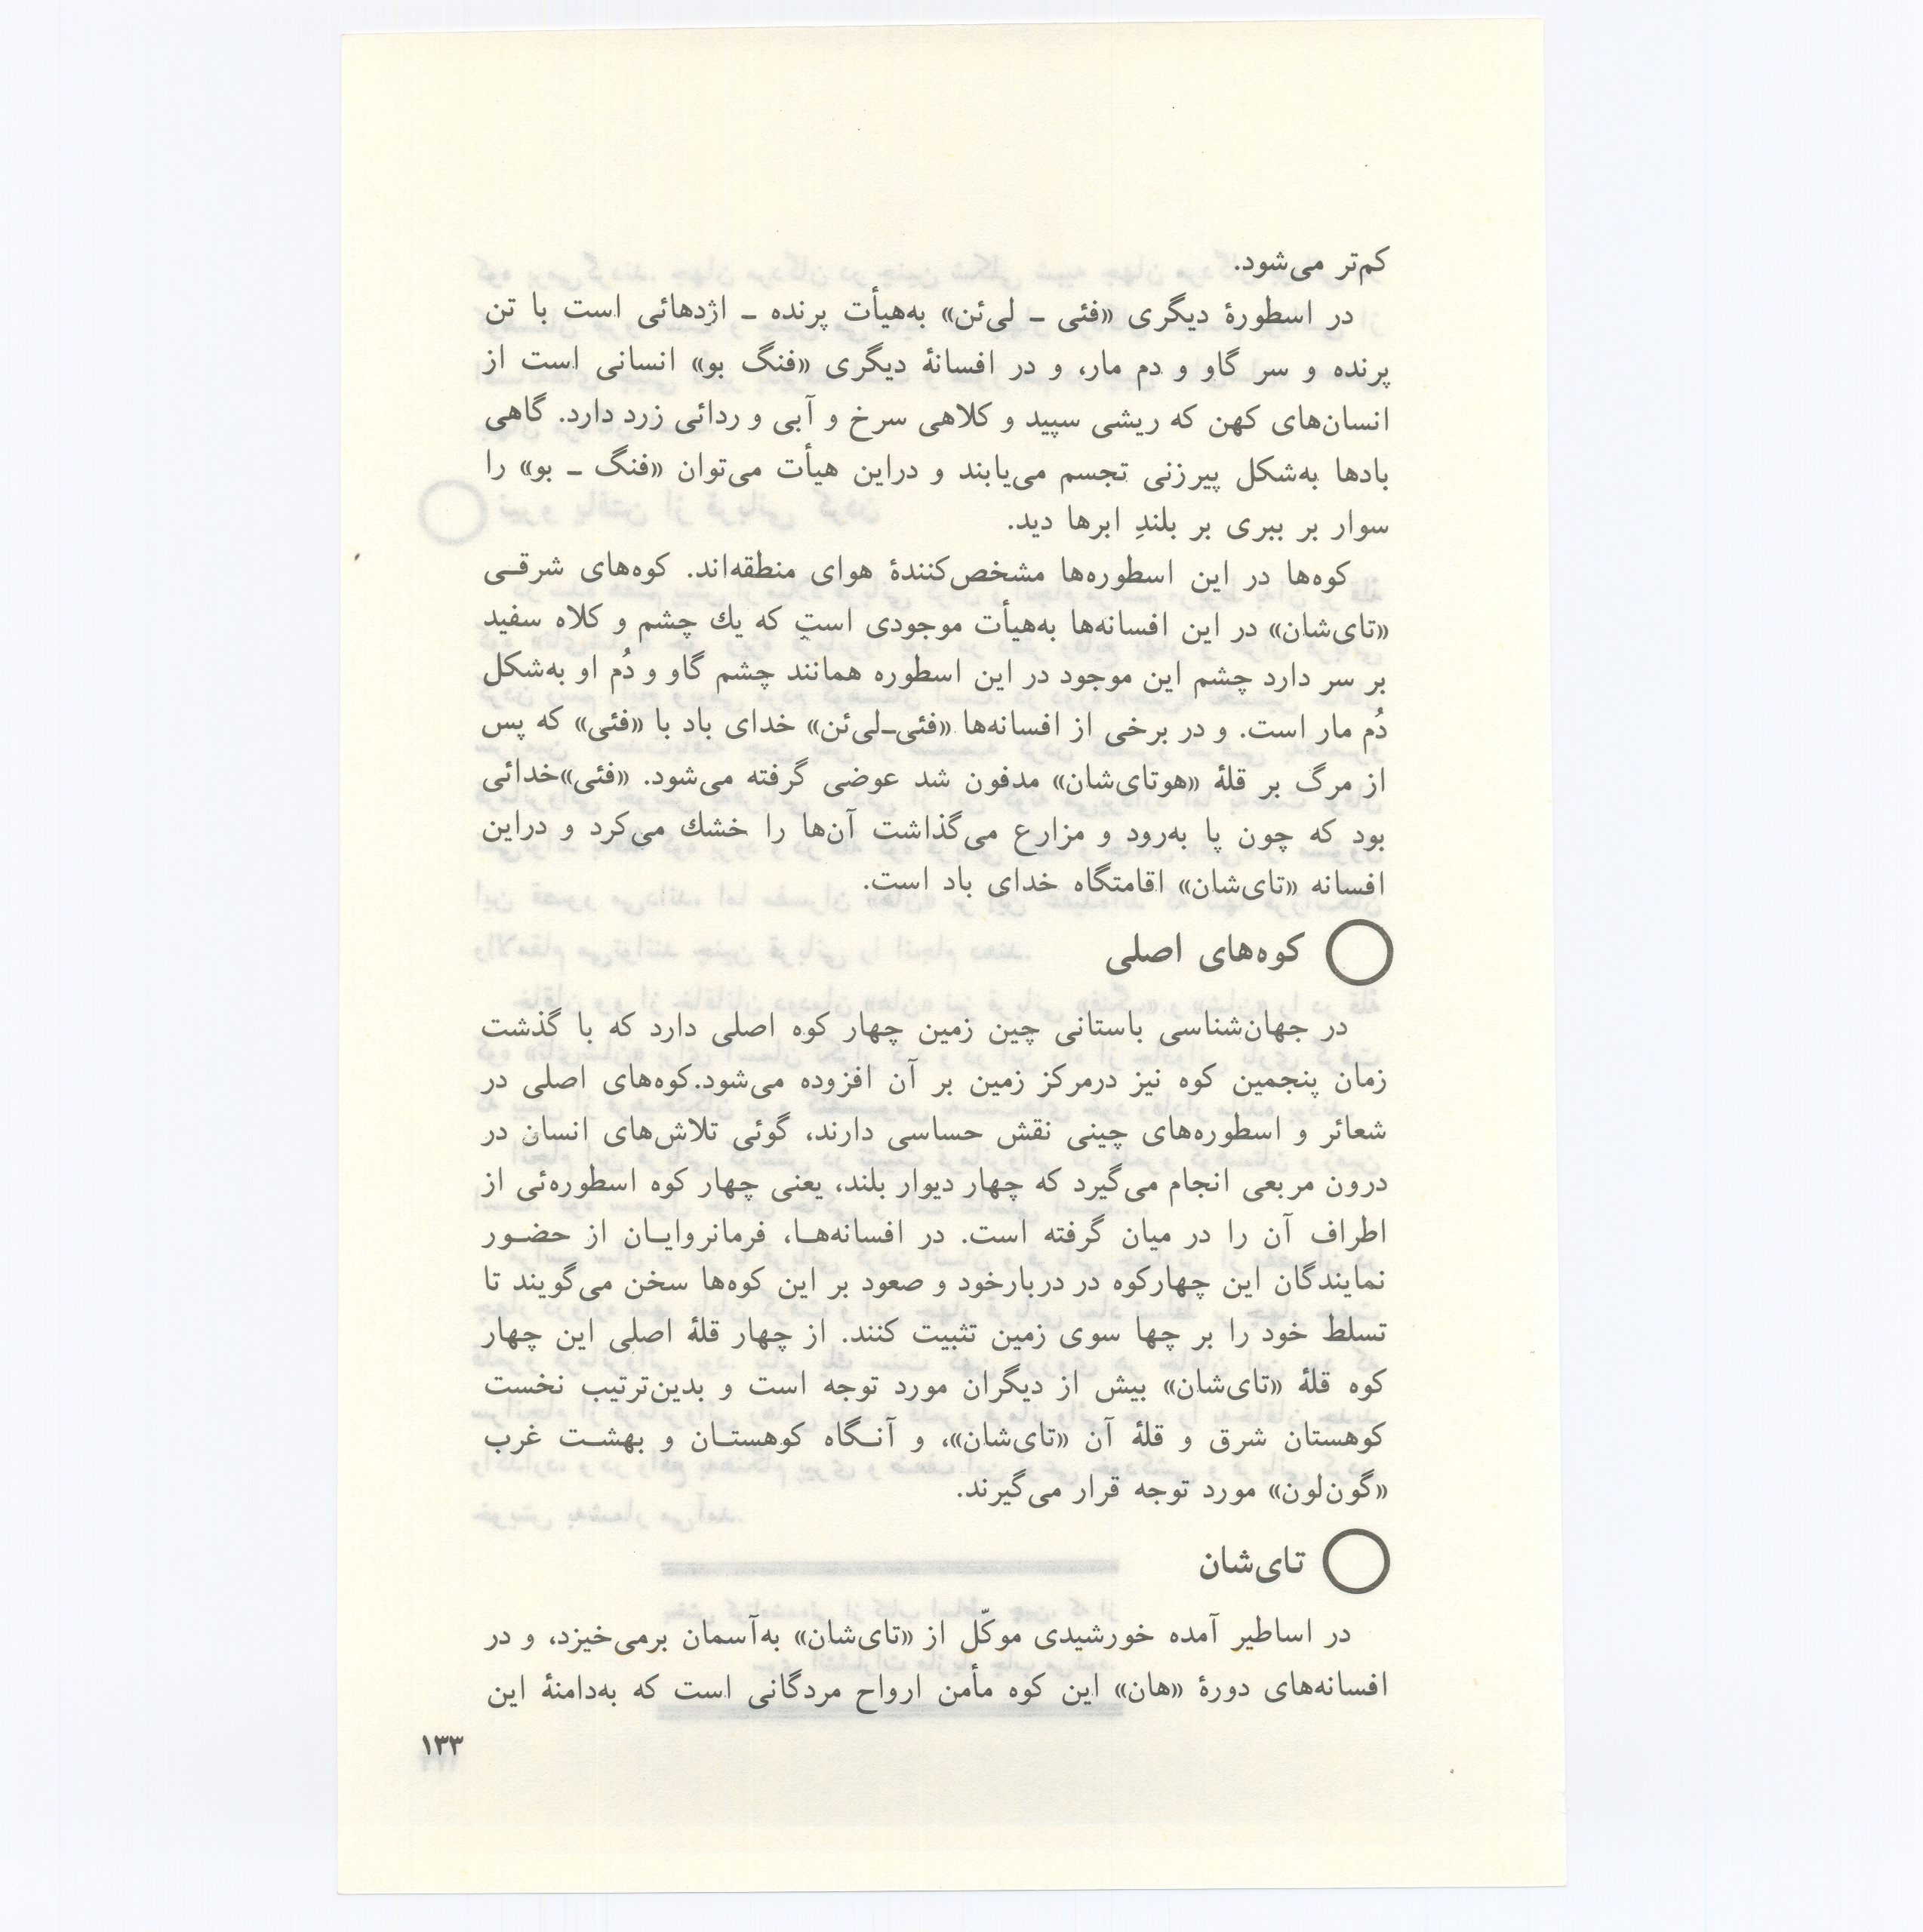 کم‌تر می‌شود.
در اسطورهٔ دیگری «فئی ـ لی‌ئن» به‌هیأت پرنده ـ اژدهائی است با تن
پرنده و سر گاو و دم مار، و در افسانهٔ دیگری «فنگ بو» انسانی است از
انسان‌های کهن که ریشی سپید و کلاهی سرخ و آبی و ردائی زرد دارد. گاهی
بادها به‌شکل پیرزنی تجسم می‌یابند و دراین هیأت می‌توان «فنگ ـ بو» را
سوار بر ببری بر بلندِ ابرها دید.
کوه‌ها در این اسطوره‌ها مشخص‌کنندهٔ هوای منطقه‌اند. کوه‌های شرقـی
«تای‌شان» در این افسانه‌ها به‌هیأت موجودی است که یك چشم و کلاه سفید
بر سر دارد چشم این موجود در این اسطوره همانند چشم گاو و دُم او به‌شکل
دُم مار است. و در برخی از افسانه‌ها «فئی‌ـلی‌ئن» خدای باد با «فئی» که پس
از مرگ بر قلهٔ «هوتای‌شان» مدفون شد عوضی گرفته می‌شود. «فئی»خدائی
بود که چون پا به‌رود و مزارع می‌گذاشت آن‌ها را خشك می‌کرد و دراین
افسانه «تای‌شان» اقامتگاه خدای باد است.
کوه‌های اصلی
در جهان‌شناسی باستانی چین زمین چهار کوه اصلی دارد که با گذشت
زمان پنجمین کوه نیز درمرکز زمین بر آن افزوده می‌شود.کوه‌های اصلی در
شعائر و اسطوره‌های چینی نقش حساسی دارند، گوئی تلاش‌های انسان در
درون مربعی انجام می‌گیرد که چهار دیوار بلند، یعنی چهار کوه اسطوره‌ئی از
اطراف آن را در میان گرفته است. در افسانه‌هـا، فرمانروایـان از حضـور
نمایندگان این چهارکوه در دربارخود و صعود بر این کوه‌ها سخن می‌گویند تا
تسلط خود را بر چها سوی زمین تثبیت کنند. از چهار قلهٔ اصلی این چهار
کوه قلهٔ «تای‌شان» بیش از دیگران مورد توجه است و بدین‌ترتیب نخست
کوهستان شرق و قلهٔ آن «تای‌شان»، و آنـگاه کوهستـان و بهشـت غرب
«گون‌لون» مورد توجه قرار می‌گیرند.
تای‌شان
در اساطیر آمده خورشیدی موکّل از «تای‌شان» به‌آسمان برمی‌خیزد، و در
افسانه‌های دورهٔ «هان» این کوه مأمن ارواح مردگانی است که به‌دامنهٔ این
۱۳۳